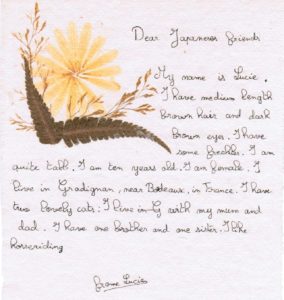 Dear Japaneses friends
My name is Lucie.
I have medium length
brown hair and dark
brown eyes. I have
some freckles. I am
quite tall. I am ten years old. I am female. I
live in Gradignan, near Bordeaux, in France. I have
two lovely cats. I live with my mum and
dad. I have one brother and one sister. I like
horseriding
from Lucie